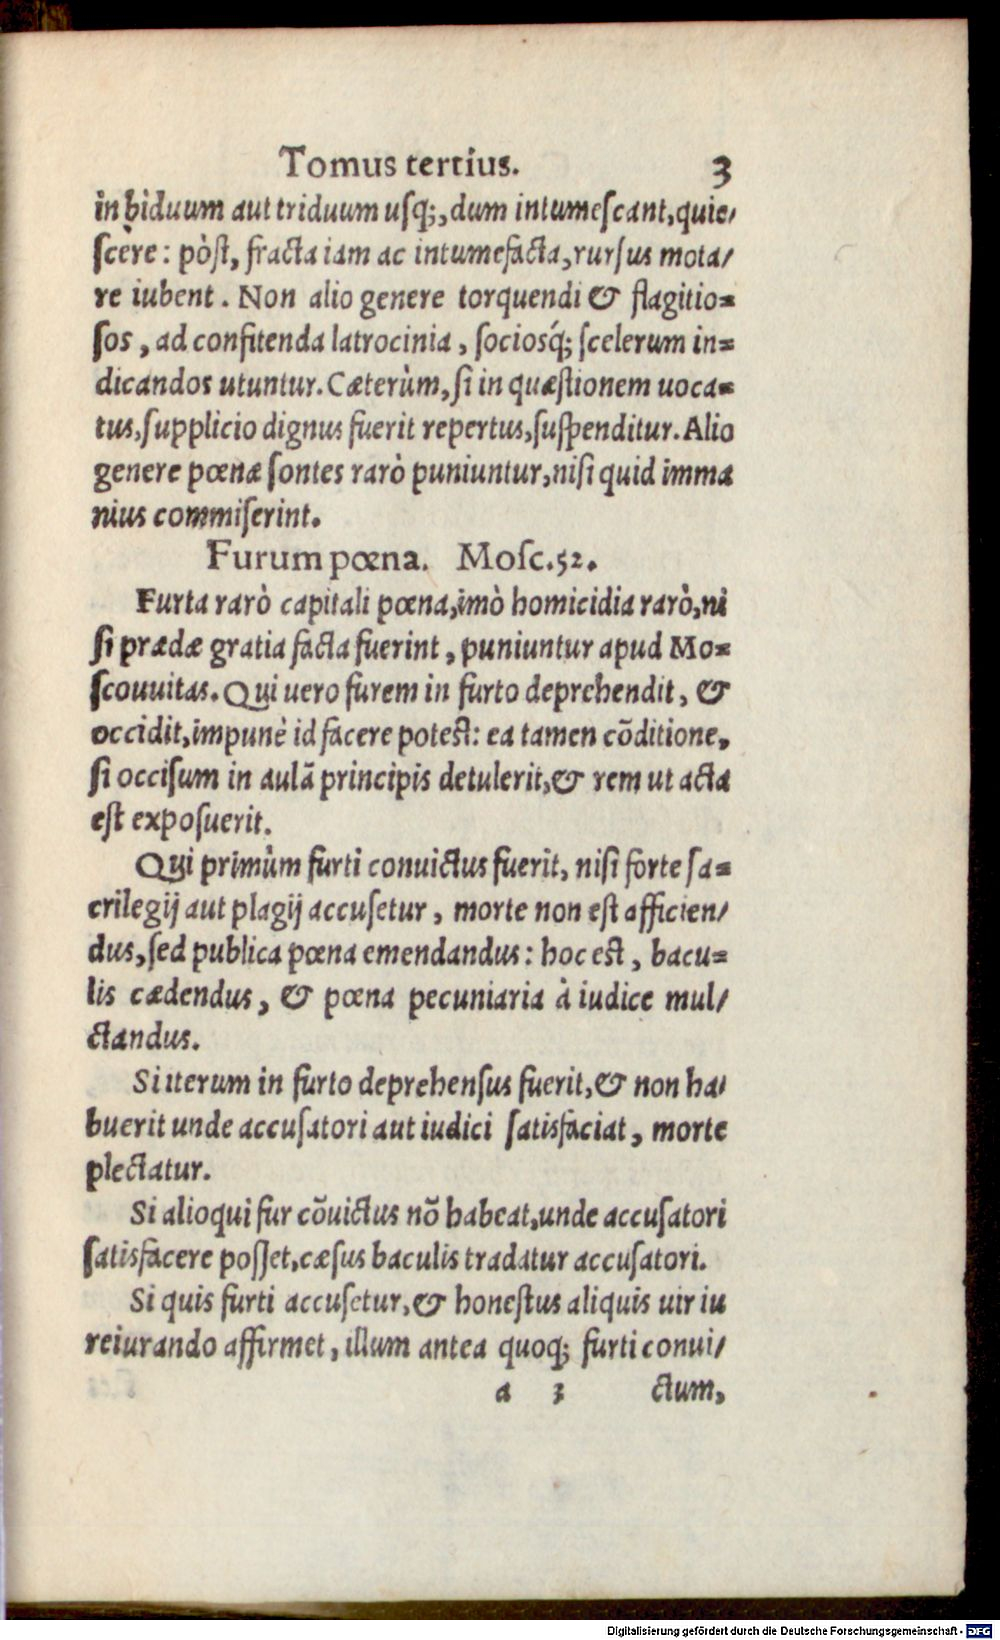 Tomus tertius. 3
in biduum aut triduum usq;, dum intumescant, quie/
scere: pòst, fracta iam ac intumefacta, rursus mota/
re iubent. Non alio genere torquendi & flagitio=
sos, ad confitenda latrocinia, sociosq́; scelerum in=
dicandos utuntur. Cæterùm, si in quæstionem uoca=
tus, supplicio dignus fuerit repertus, suspenditur. Alio
genere pœnæ sontes rarò puniuntur, nisi quid imma
nius commiserint.
Furum pœna. Mosc. 52.
Furta rarò capitali pœna, imò homicidia rarò, ni
si prædæ gratia facta fuerint, puniuntur apud Mo=
scouuitas. Qui uero furem in furto deprehendit, &
occidit, impunè id facere potest: ea tamen cõditione,
si occisum in aulã principis detulerit, & rem ut acta
est exposuerit.
Qui primùm furti conuictus fuerit, nisi forte sa=
crilegij aut plagij accusetur, morte non est afficien/
dus, sed publica pœna emendandus: hoc est, bacu=
lis cædendus, & pœna pecuniaria à iudice mul/
ctandus.
Si iterum in furto deprehensus fuerit, & non ha/
buerit unde accusatori aut iudici satisfaciat, morte
plectatur.
Si alioqui fur cõuictus nõ habeat, unde accusatori
satisfacere posset, cæsus baculis tradatur accusatori.
Si quis furti accusetur, & honestus aliquis uir iu
reiurando affirmet, illum antea quoq; furti conui/
a 3 ctum,
Digitalisierung gefördert durch die Deutsche Forschungsgemeinschaft - DFG